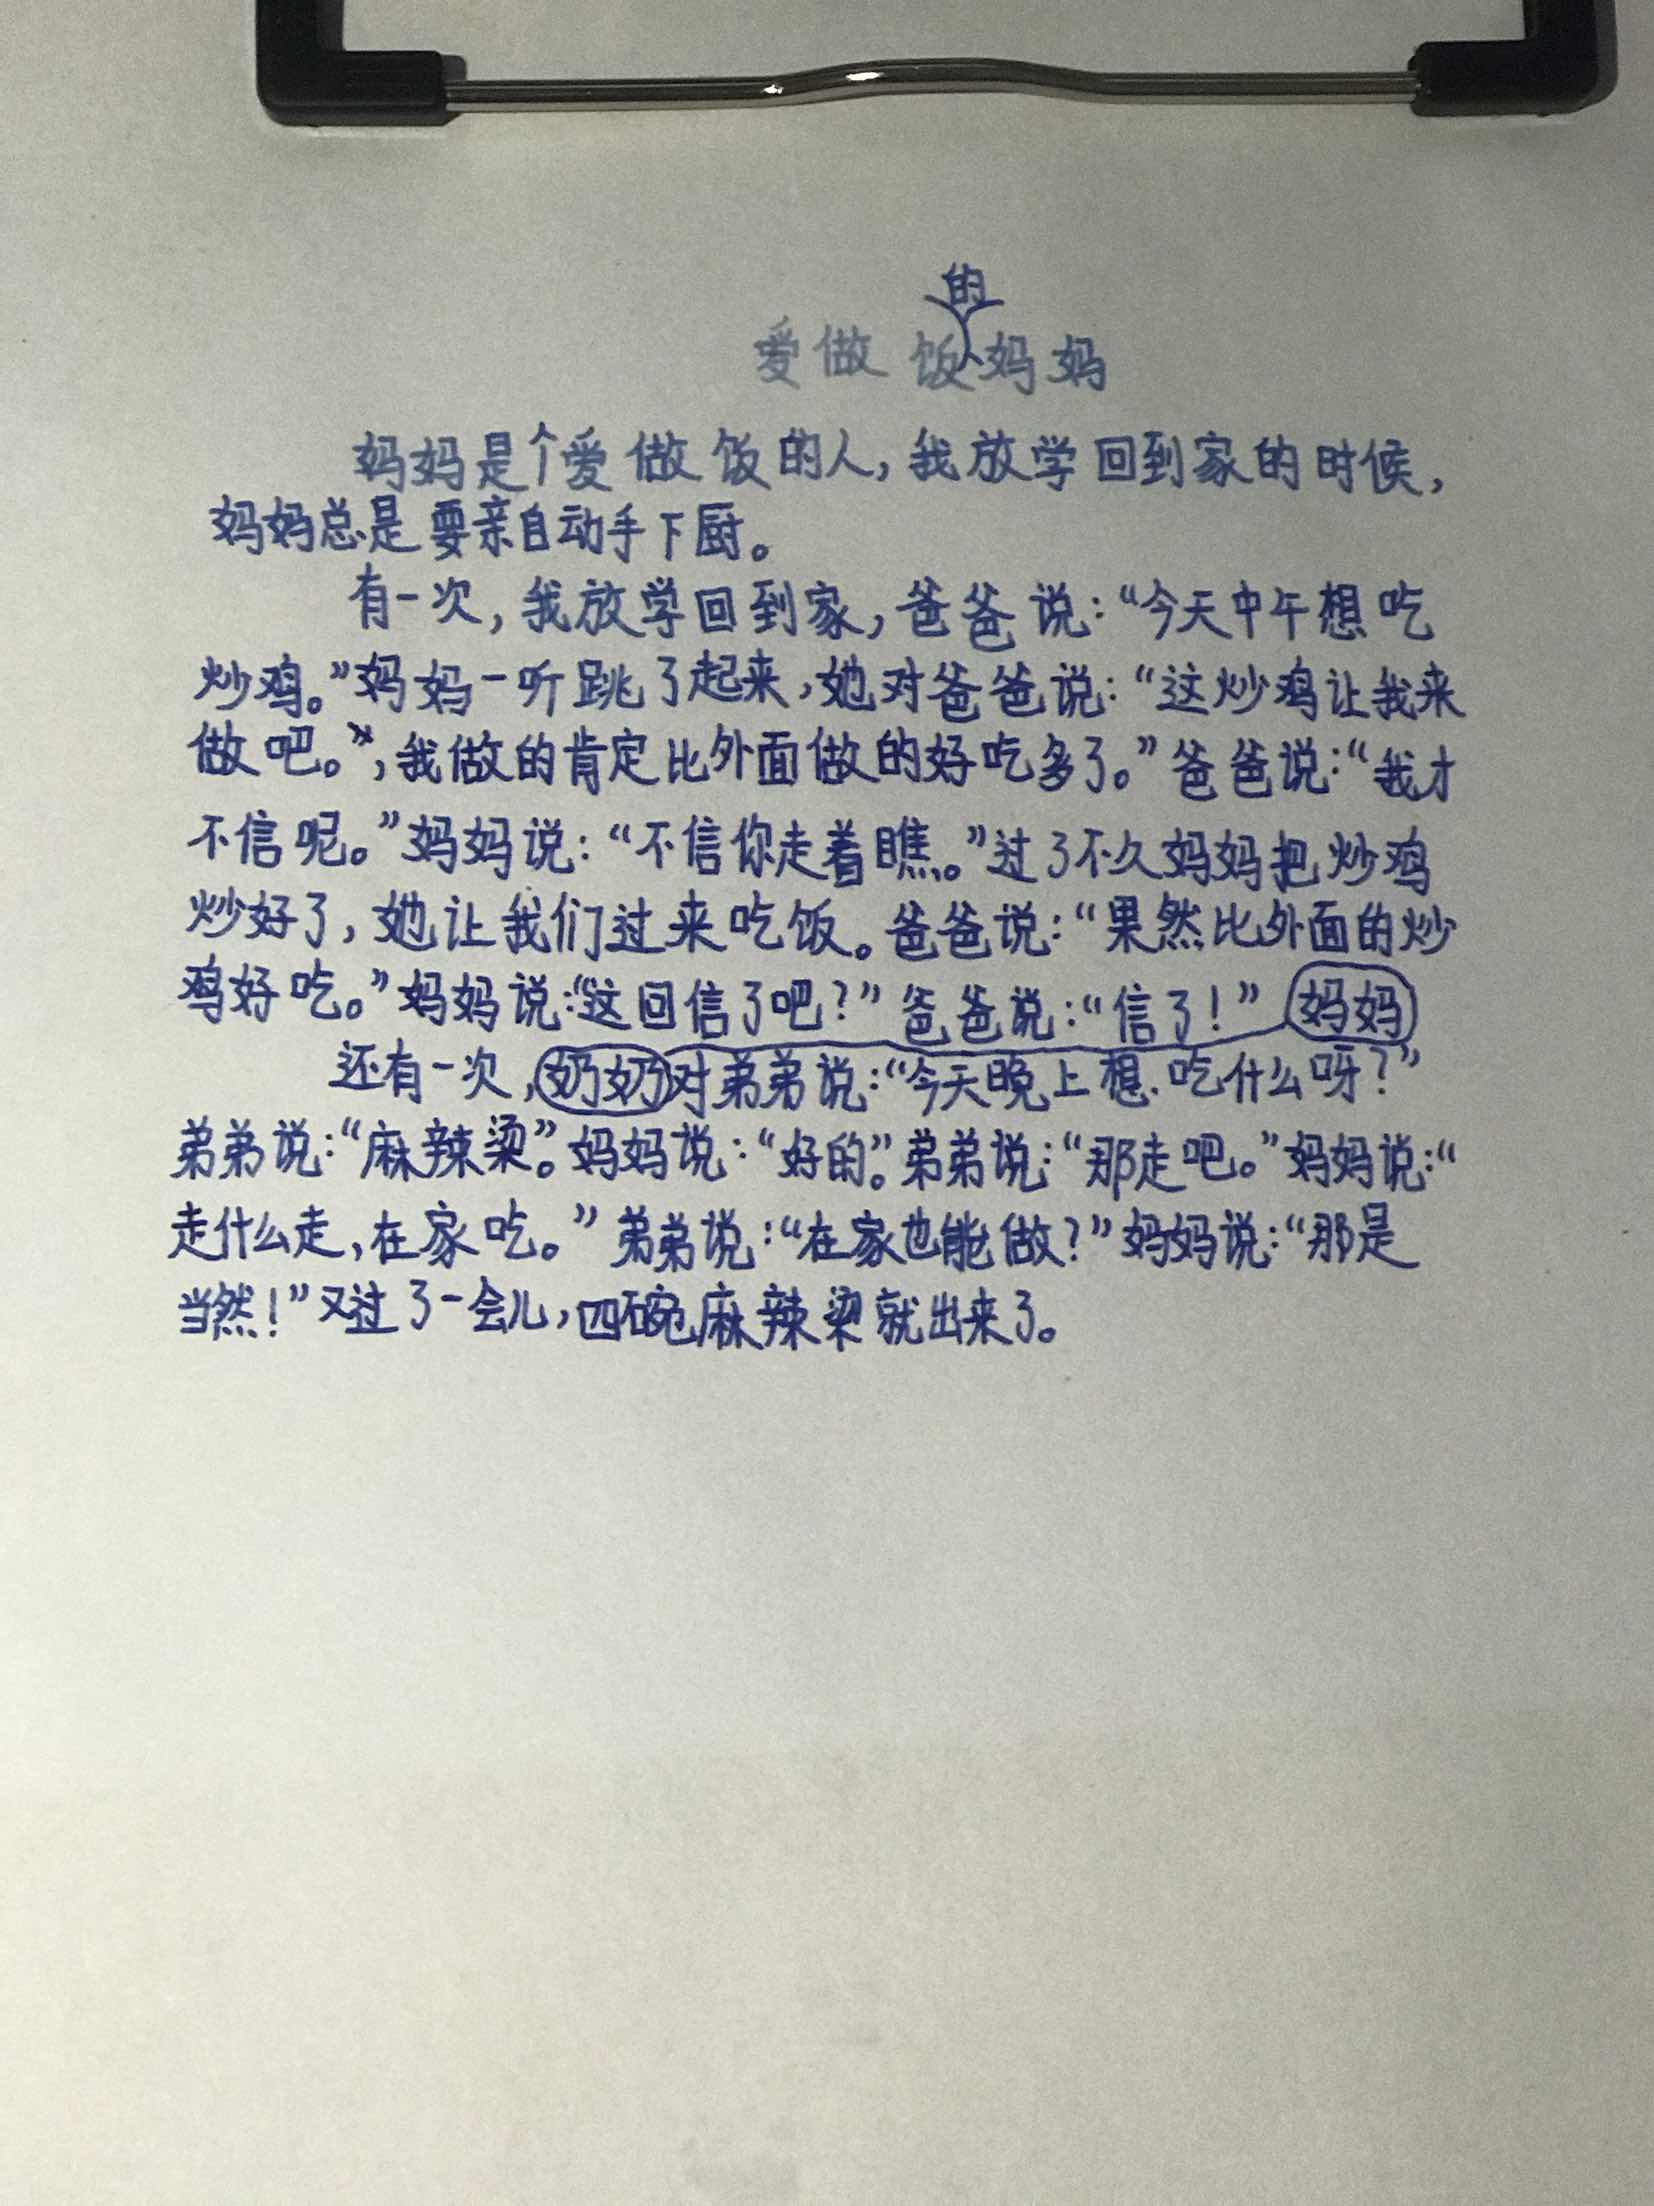 的
爱做饭妈妈
妈妈是个爱做饭的人,我放学回到家的时候,
妈妈总是要亲自动手下厨。
有一次,我放学回到家,爸爸说:“今天中午想吃
炒鸡。”妈妈一听跳了起来,她对爸爸说:“这炒鸡让我来
做吧。”,我做的肯定比外面做的好吃多了。”爸爸说:“我才
不信呢。”妈妈说:“不信你走着瞧。”过了不久妈妈把炒鸡
炒好了,她让我们过来吃饭。爸爸说:“果然比外面的炒
鸡好吃。”妈妈说:“这回信了吧?”爸爸说:“信了!”妈妈
还有一次,奶奶对弟弟说:“今天晚上想吃什么呀?”
弟弟说:“麻辣烫”。妈妈说:“好的”。弟弟说:“那走吧。”妈妈说:“
走什么走,在家吃。”弟弟说:“在家也能做?”妈妈说:“那是
当然!”又过了一会儿,四碗麻辣烫就出来了。